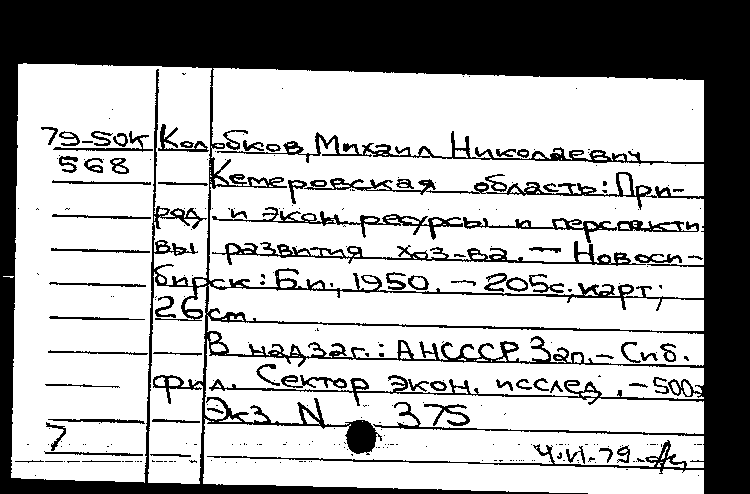 79-50К Колобков, Михаил Николаевич.
568 Кемеровская область: При-
род. и экон. ресурсы и перспекти-
вы развития хоз-ва. — Новоси-
бирск: Б.и., 1950. — 205с.; карт;
26 cm.
В надзаг.: АНСССР. Зап.-Сиб.
фил. Сектор экон. исслед. — 500э
Экз. N 375
7
4.VI.79